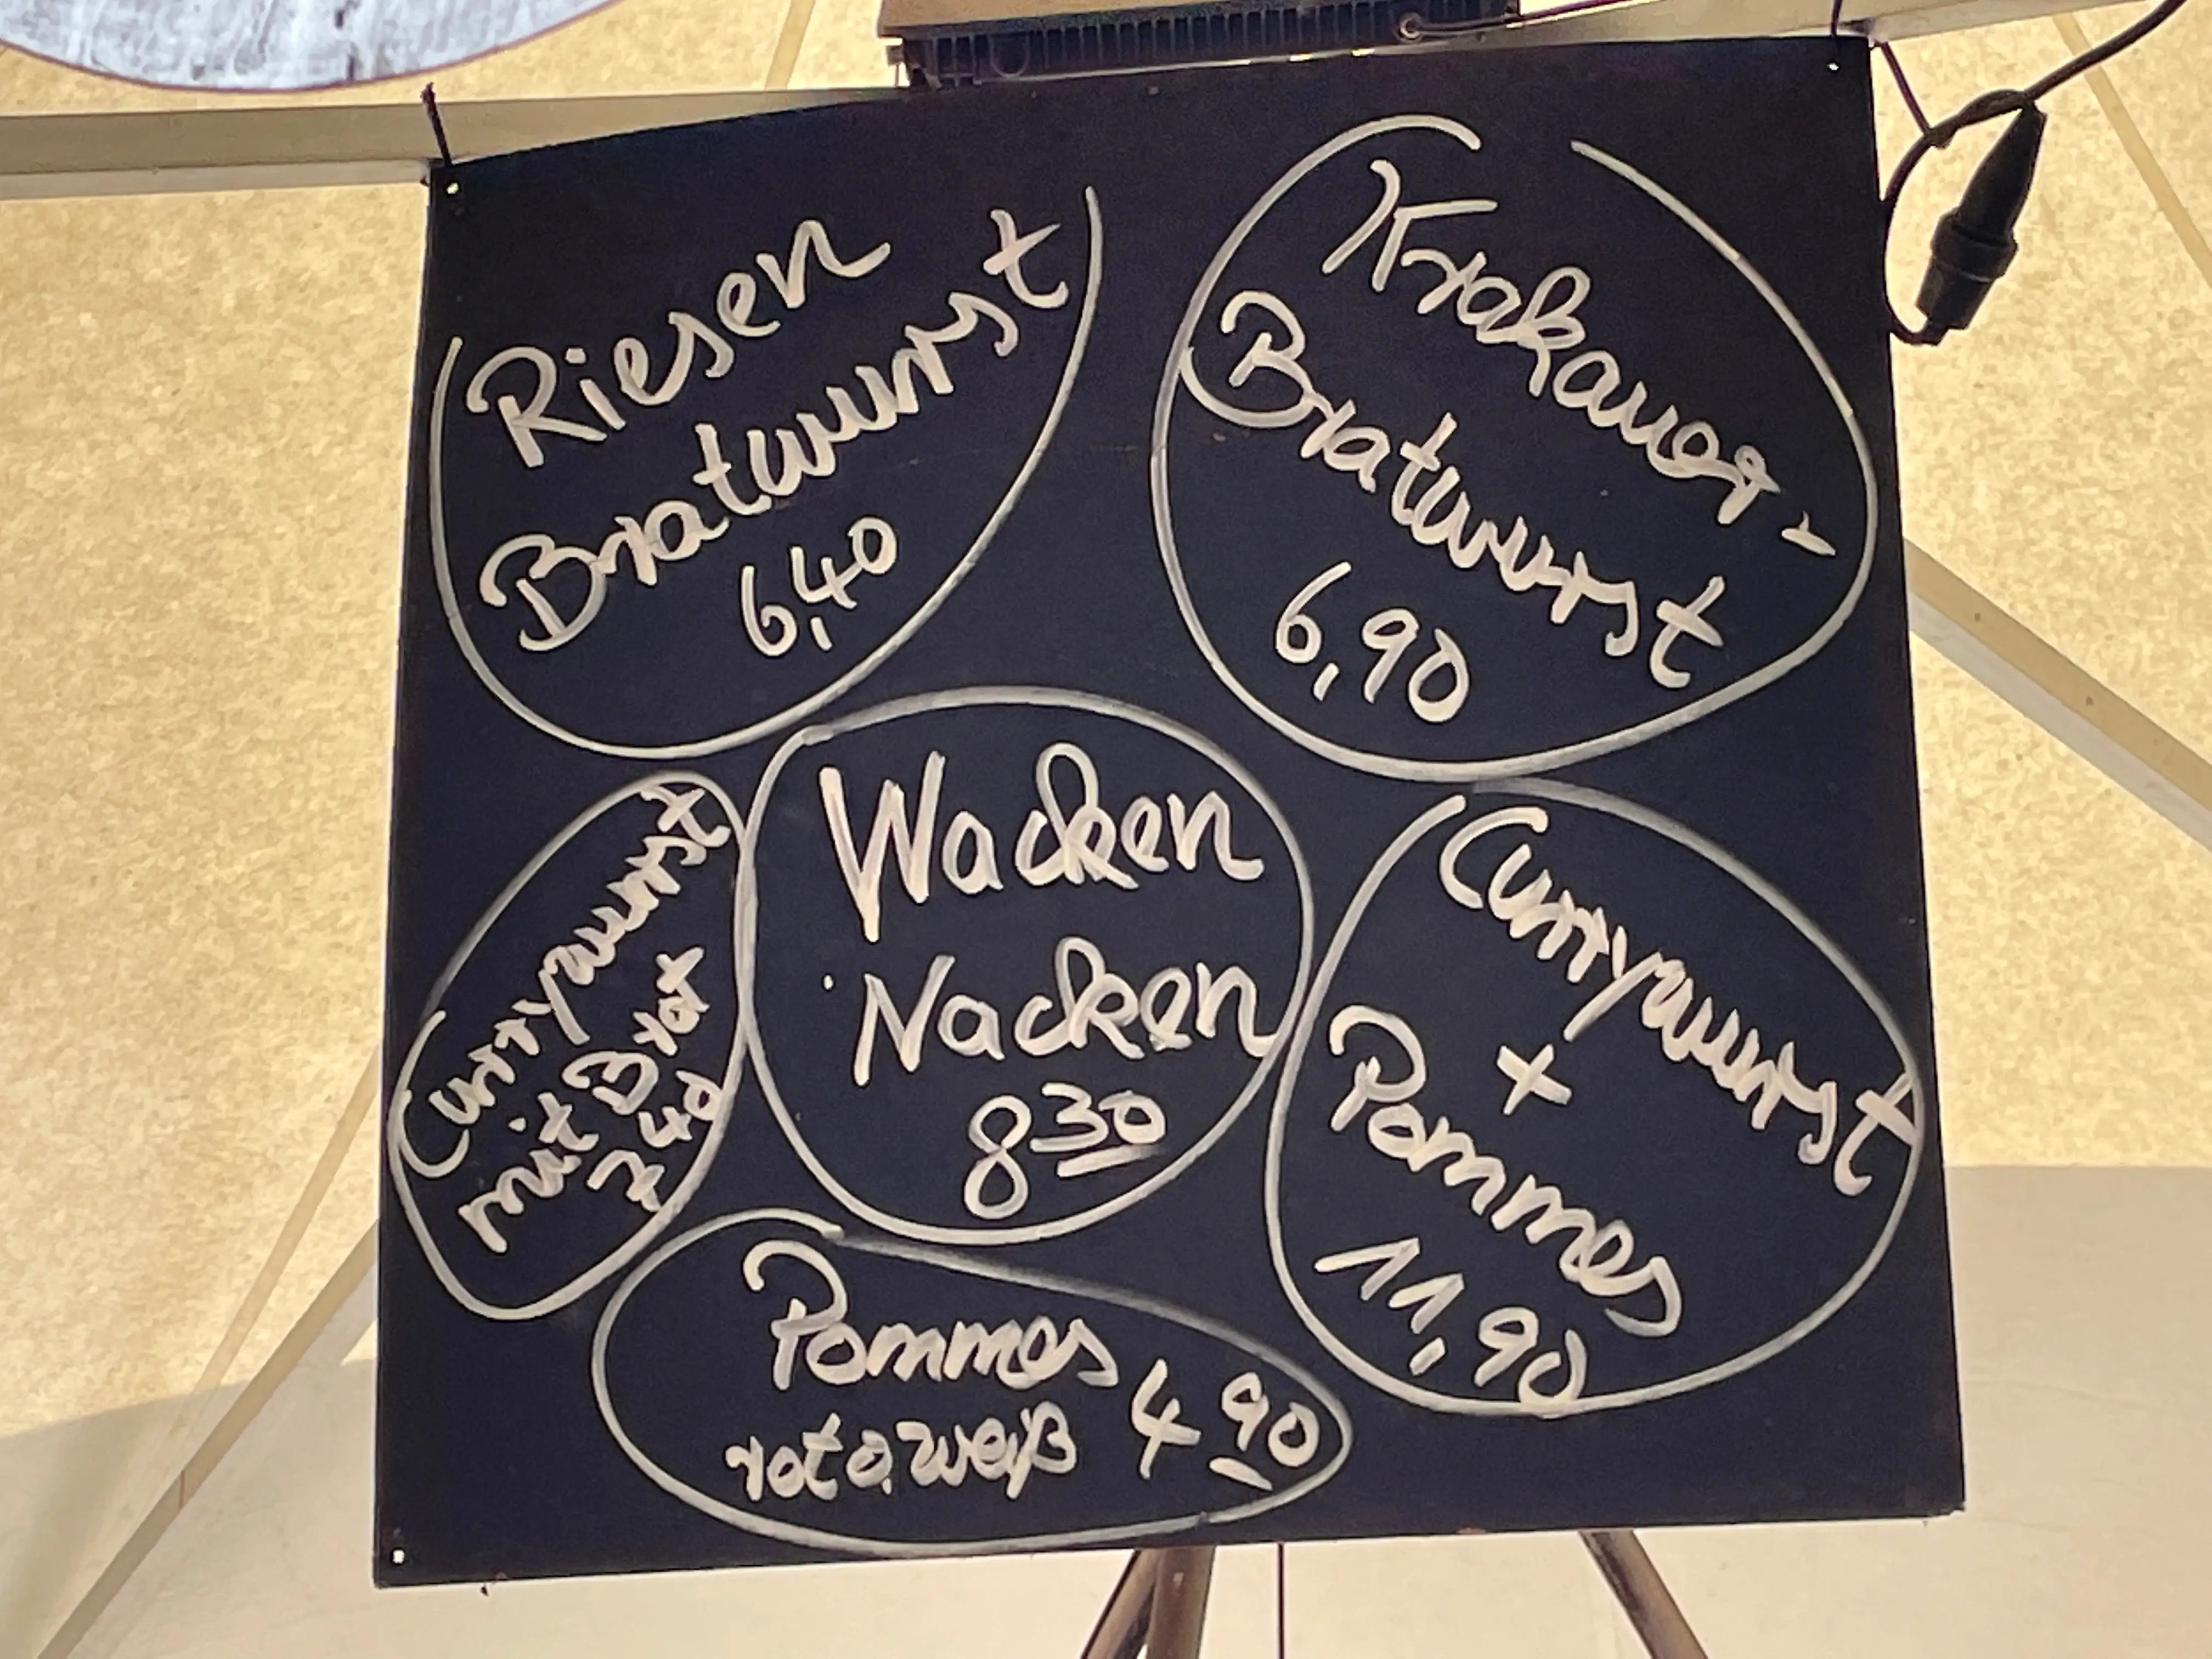 Riesen
Bratwurst
6,40
Krakauer-
Bratwurst
6,90
Currywurst
mit Brot
7 40
Wacken
Nacken
8 30
Currywurst
+
Pommes
11,90
Pommes
rot o. weiß 4 90